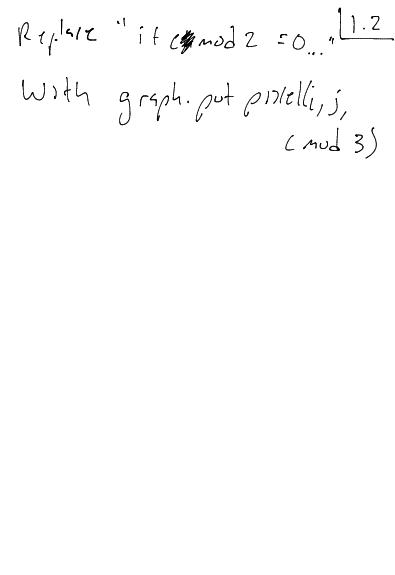 Replace "if c mod 2 = 0..." 1.2
With graph.putpixel(i,j,
c mod 3)